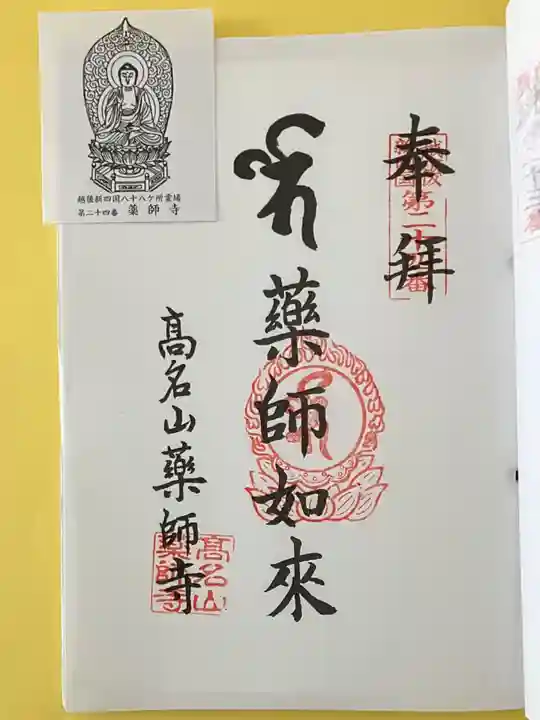 奉拝
越後新四国第二十四番
藥師如來
高名山藥師寺
高名山藥師寺
越後新四国八十八ケ所霊場
第二十四番 薬師寺